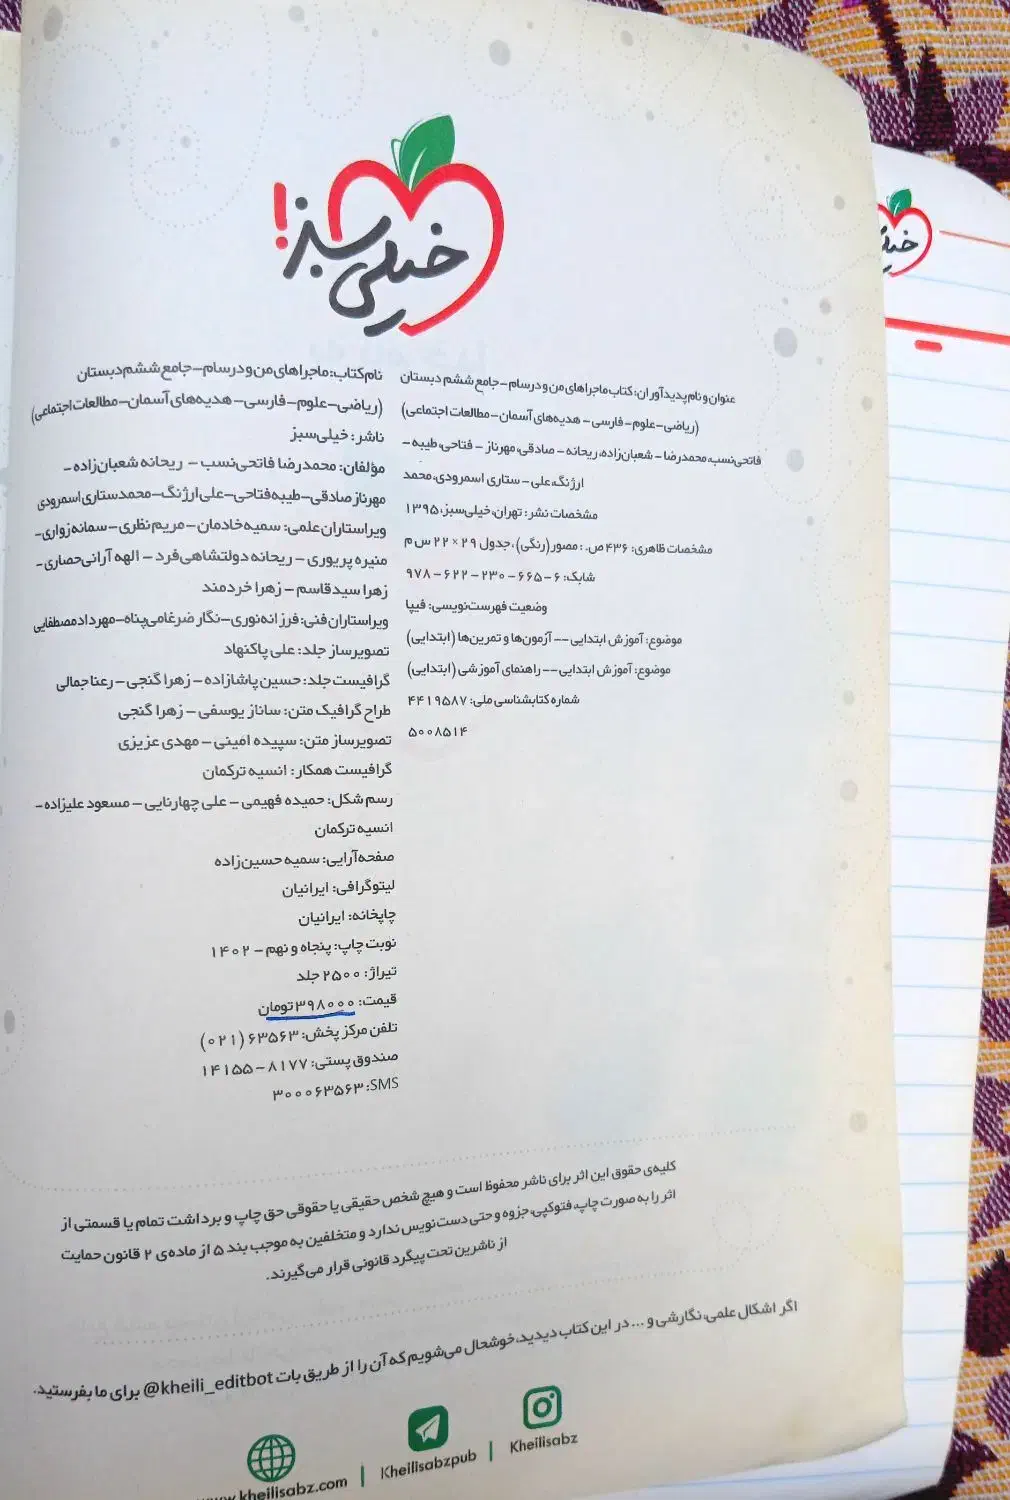 خیلی سبز!
عنوان و نام پدیدآوران: کتاب ماجراهای من و درسام – جامع ششم دبستان
(ریاضی – علوم – فارسی – هدیه‌های آسمان – مطالعات اجتماعی)
فاتحی‌نسب، محمدرضا – شعبان‌زاده، ریحانه – صادقی، مهرناز – فتاحی، طیبه –
ارژنگ، علی – ستاری اسمرودی، محمد
مشخصات نشر: تهران، خیلی‌سبز، ۱۳۹۵
مشخصات ظاهری: ۴۳۶ ص. : مصور (رنگی)، جدول ۲۹ × ۲۲ س م
شابک: ۶ – ۶۶۵ – ۲۳۰ – ۶۲۲ – ۹۷۸
وضعیت فهرست‌نویسی: فیپا
موضوع: آموزش ابتدایی –– آزمون‌ها و تمرین‌ها (ابتدایی)
موضوع: آموزش ابتدایی –– راهنمای آموزشی (ابتدایی)
شماره کتابشناسی ملی: ۴۴۱۹۵۸۷
۵۰۰۸۵۱۴
نام کتاب: ماجراهای من و درسام – جامع ششم دبستان
(ریاضی – علوم – فارسی – هدیه‌های آسمان – مطالعات اجتماعی)
ناشر: خیلی‌سبز
مؤلفان: محمدرضا فاتحی‌نسب – ریحانه شعبان‌زاده –
مهرناز صادقی – طیبه فتاحی – علی ارژنگ – محمد ستاری اسمرودی
ویراستاران علمی: سمیه خادمان – مریم نظری – سمانه زواری –
منیره پریوری – ریحانه دولتشاهی‌فرد – الهه آرانی‌حصاری –
زهرا سیدقاسم – زهرا خردمند
ویراستاران فنی: فرزانه نوری – نگار ضرغامی‌پناه – مهرداد مصطفایی
تصویرساز جلد: علی پاکنهاد
گرافیست جلد: حسین پاشازاده – زهرا گنجی – رعنا جمالی
طراح گرافیک متن: ساناز یوسفی – زهرا گنجی
تصویرساز متن: سپیده امینی – مهدی عزیزی
گرافیست همکار: انسیه ترکمان
رسم شکل: حمیده فهیمی – علی چهارنایی – مسعود علیزاده –
انسیه ترکمان
صفحه‌آرایی: سمیه حسین‌زاده
لیتوگرافی: ایرانیان
چاپخانه: ایرانیان
نوبت چاپ: پنجاه و نهم – ۱۴۰۲
تیراژ: ۲۵۰۰ جلد
قیمت: ۳۹۸۰۰۰ تومان
تلفن مرکز پخش: ۶۳۵۶۳ (۰۲۱)
صندوق پستی: ۸۱۷۷ – ۱۴۱۵۵
SMS: ۳۰۰۰۶۳۵۶۳
کلیه‌ی حقوق این اثر برای ناشر محفوظ است و هیچ شخص حقیقی یا حقوقی حق چاپ و برداشت تمام یا قسمتی از
اثر را به صورت چاپ، فتوکپی، جزوه و حتی دست‌نویس ندارد و متخلفین به موجب بند ۵ از ماده‌ی ۲ قانون حمایت
از ناشرین تحت پیگرد قانونی قرار می‌گیرند.
اگر اشکال علمی، نگارشی و ... در این کتاب دیدید، خوشحال می‌شویم که آن را از طریق بات @kheili_editbot برای ما بفرستید.
www.kheilisabz.com | Kheilisabzpub | Kheilisabz